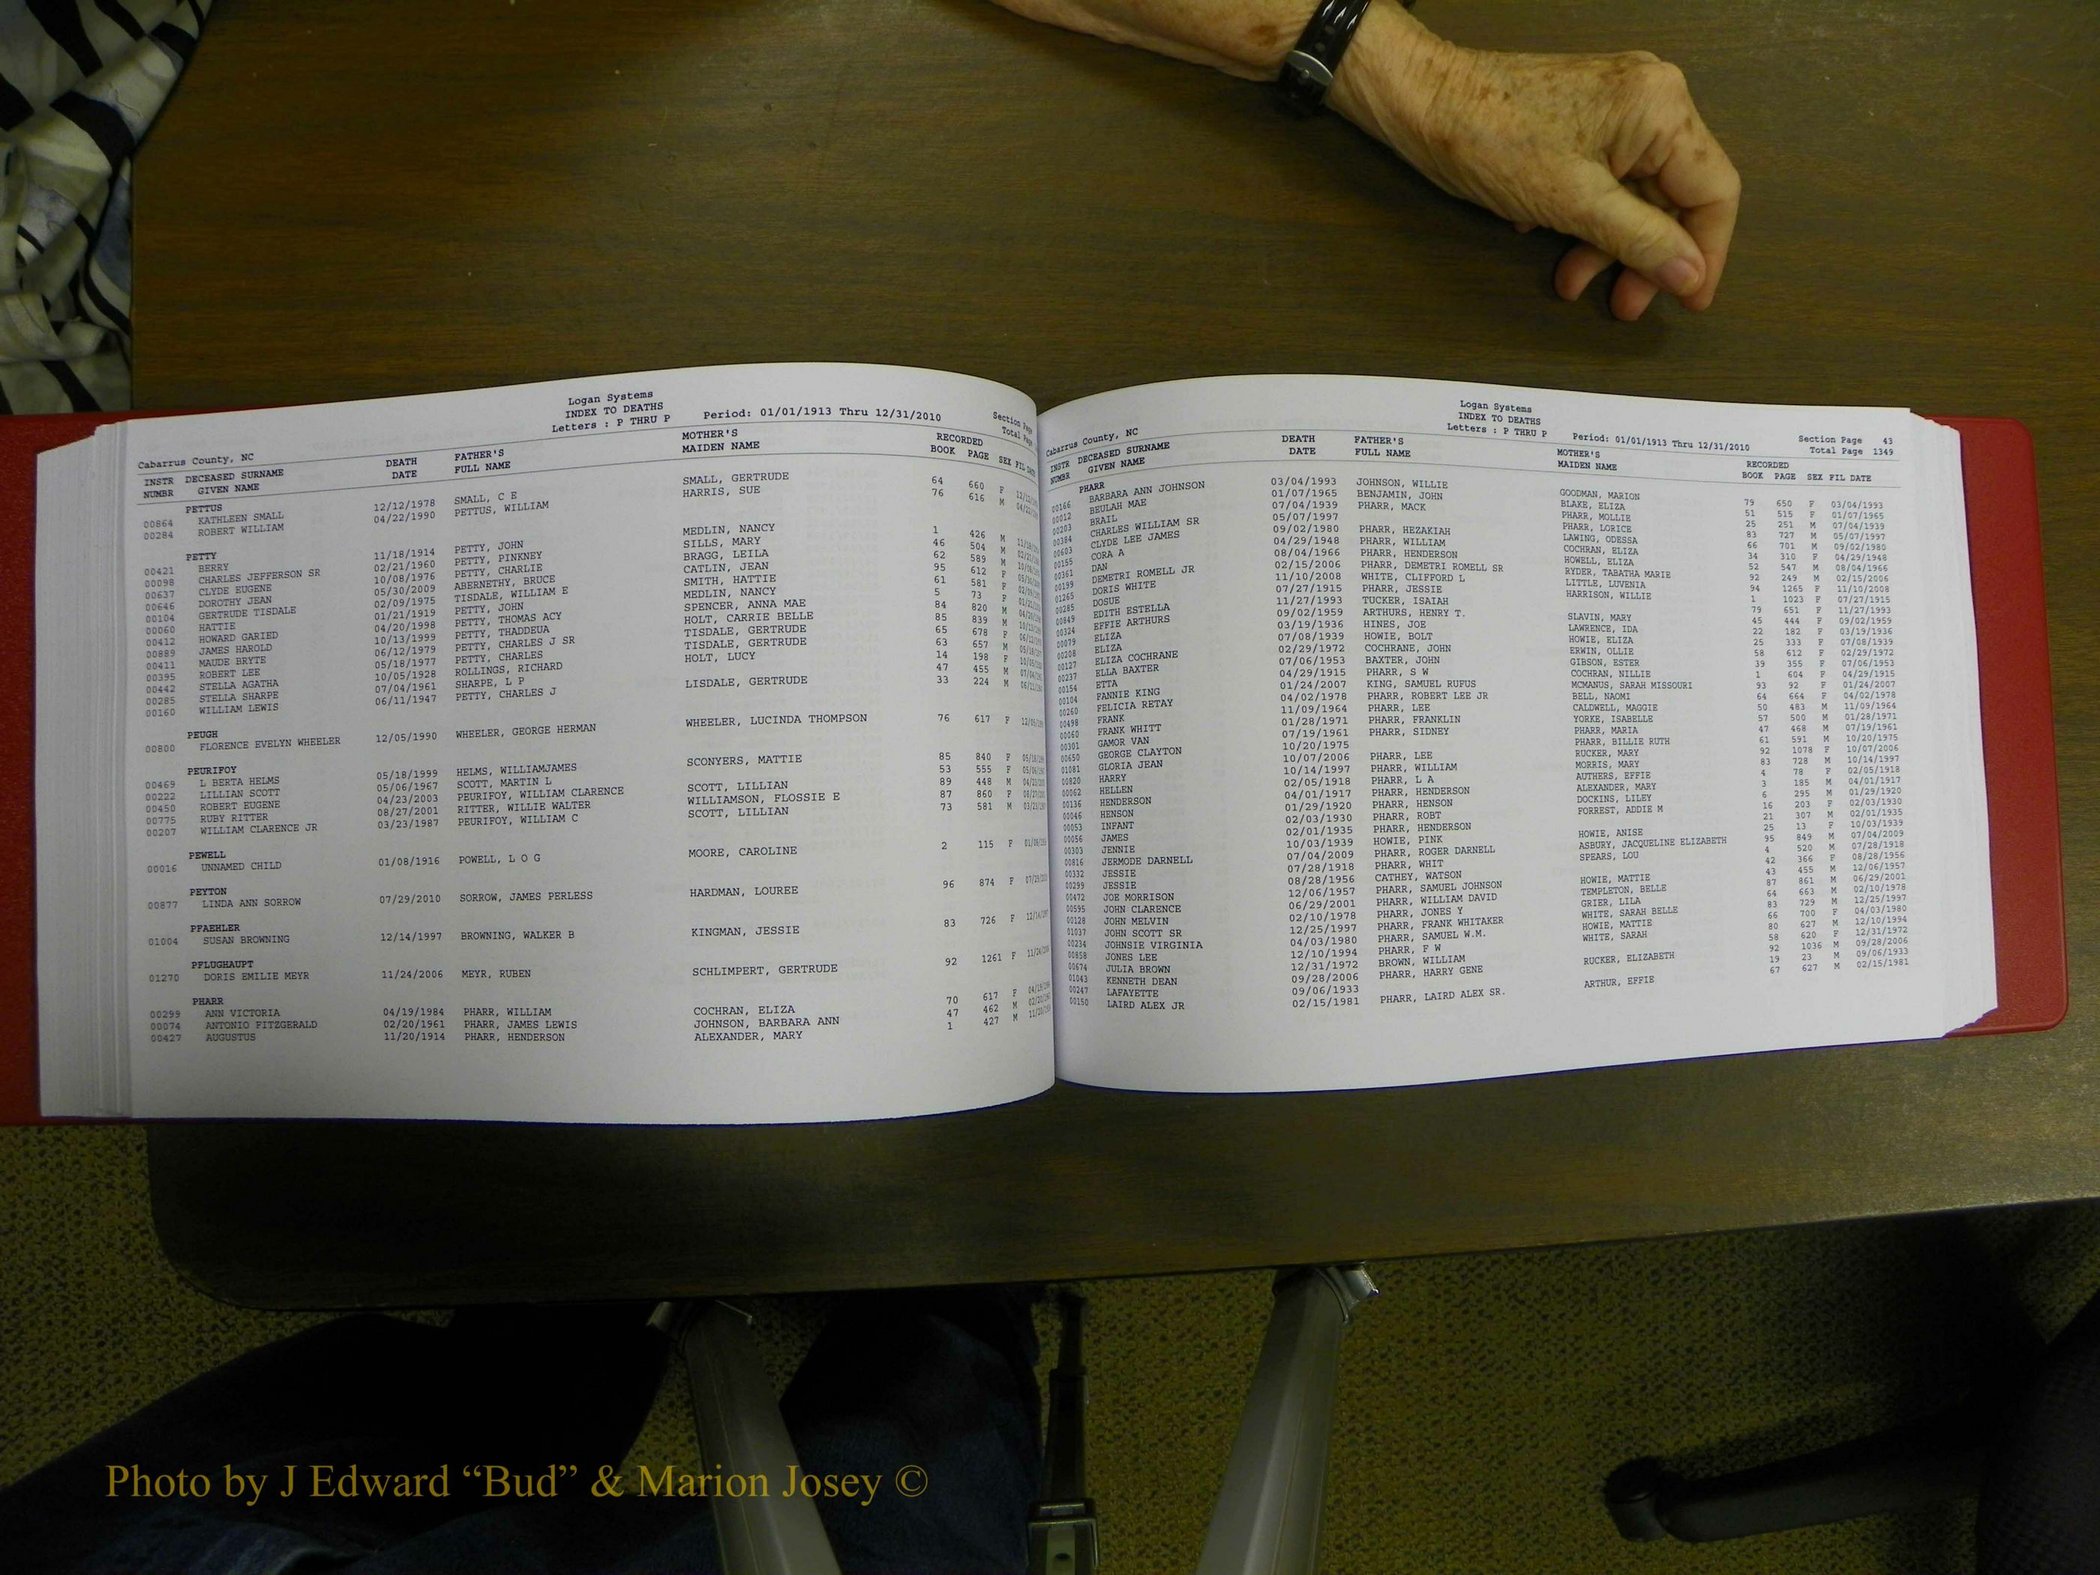 Logan Systems
INDEX TO DEATHS
Letters : P THRU P Period: 01/01/1913 Thru 12/31/2010 Section Page
Cabarrus County, NC Total Page
INSTR DECEASED SURNAME DEATH FATHER'S MOTHER'S RECORDED
NUMBR GIVEN NAME DATE FULL NAME MAIDEN NAME BOOK PAGE SEX FIL DATE
PETTUS
00864 KATHLEEN SMALL 12/12/1978 SMALL, C E SMALL, GERTRUDE 64 660 F
00284 ROBERT WILLIAM 04/22/1990 PETTUS, WILLIAM HARRIS, SUE 76 616 M
PETTY
00421 BERRY 11/18/1914 PETTY, JOHN MEDLIN, NANCY 1 426 M
00098 CHARLES JEFFERSON SR 02/21/1960 PETTY, PINKNEY SILLS, MARY 46 504 M
00637 CLYDE EUGENE 10/08/1976 PETTY, CHARLIE BRAGG, LEILA 62 589 M
00646 DOROTHY JEAN 05/30/2009 ABERNETHY, BRUCE CATLIN, JEAN 95 612 F
00104 GERTRUDE TISDALE 02/09/1975 TISDALE, WILLIAM E SMITH, HATTIE 61 581 F
00060 HATTIE 01/21/1919 PETTY, JOHN MEDLIN, NANCY 5 73 F
00412 HOWARD GARIED 04/20/1998 PETTY, THOMAS ACY SPENCER, ANNA MAE 84 820 M
00889 JAMES HAROLD 10/13/1999 PETTY, THADDEUA HOLT, CARRIE BELLE 85 839 M
00411 MAUDE BRYTE 06/12/1979 PETTY, CHARLES J SR TISDALE, GERTRUDE 65 678 F
00395 ROBERT LEE 05/18/1977 PETTY, CHARLES TISDALE, GERTRUDE 63 657 M
00442 STELLA AGATHA 10/05/1928 ROLLINGS, RICHARD HOLT, LUCY 14 198 F
00285 STELLA SHARPE 07/04/1961 SHARPE, L P 47 455 M
00160 WILLIAM LEWIS 06/11/1947 PETTY, CHARLES J LISDALE, GERTRUDE 33 224 M
PEUGH
00800 FLORENCE EVELYN WHEELER 12/05/1990 WHEELER, GEORGE HERMAN WHEELER, LUCINDA THOMPSON 76 617 F
PEURIFOY
00469 L BERTA HELMS 05/18/1999 HELMS, WILLIAMJAMES SCONYERS, MATTIE 85 840 F
00222 LILLIAN SCOTT 05/06/1967 SCOTT, MARTIN L 53 555 F
00450 ROBERT EUGENE 04/23/2003 PEURIFOY, WILLIAM CLARENCE SCOTT, LILLIAN 89 448 M
00775 RUBY RITTER 08/27/2001 RITTER, WILLIE WALTER WILLIAMSON, FLOSSIE E 87 860 F
00207 WILLIAM CLARENCE JR 03/23/1987 PEURIFOY, WILLIAM C SCOTT, LILLIAN 73 581 M
PEWELL
00016 UNNAMED CHILD 01/08/1916 POWELL, L O G MOORE, CAROLINE 2 115 F
PEYTON
00877 LINDA ANN SORROW 07/29/2010 SORROW, JAMES PERLESS HARDMAN, LOUREE 96 874 F
PFAEHLER
01004 SUSAN BROWNING 12/14/1997 BROWNING, WALKER B KINGMAN, JESSIE 83 726 F
PFLUGHAUPT
01270 DORIS EMILIE MEYR 11/24/2006 MEYR, RUBEN SCHLIMPERT, GERTRUDE 92 1261 F
PHARR
00299 ANN VICTORIA 04/19/1984 PHARR, WILLIAM COCHRAN, ELIZA 70 617 F
00074 ANTONIO FITZGERALD 02/20/1961 PHARR, JAMES LEWIS JOHNSON, BARBARA ANN 47 462 M
00427 AUGUSTUS 11/20/1914 PHARR, HENDERSON ALEXANDER, MARY 1 427 M
Logan Systems
INDEX TO DEATHS
Letters : P THRU P Period: 01/01/1913 Thru 12/31/2010 Section Page 43
Cabarrus County, NC Total Page 1349
INSTR DECEASED SURNAME DEATH FATHER'S MOTHER'S RECORDED
NUMBR GIVEN NAME DATE FULL NAME MAIDEN NAME BOOK PAGE SEX FIL DATE
PHARR
00166 BARBARA ANN JOHNSON 03/04/1993 JOHNSON, WILLIE GOODMAN, MARION 79 650 F 03/04/1993
00012 BEULAH MAE 01/07/1965 BENJAMIN, JOHN BLAKE, ELIZA 51 515 F 01/07/1965
00203 BRAIL 07/04/1939 PHARR, MACK PHARR, MOLLIE 25 251 M 07/04/1939
00384 CHARLES WILLIAM SR 05/07/1997 PHARR, LORICE 83 727 M 05/07/1997
00603 CLYDE LEE JAMES 09/02/1980 PHARR, HEZAKIAH LAWING, ODESSA 66 701 M 09/02/1980
00155 CORA A 04/29/1948 PHARR, WILLIAM COCHRAN, ELIZA 34 310 F 04/29/1948
00361 DAN 08/04/1966 PHARR, HENDERSON HOWELL, ELIZA 52 547 M 08/04/1966
00199 DEMETRI ROMELL JR 02/15/2006 PHARR, DEMETRI ROMELL SR RYDER, TABATHA MARIE 92 249 M 02/15/2006
01265 DORIS WHITE 11/10/2008 WHITE, CLIFFORD L LITTLE, LUVENIA 94 1265 F 11/10/2008
00285 DOSUE 07/27/1915 PHARR, JESSIE HARRISON, WILLIE 1 1023 F 07/27/1915
00849 EDITH ESTELLA 11/27/1993 TUCKER, ISAIAH 79 651 F 11/27/1993
00324 EFFIE ARTHURS 09/02/1959 ARTHURS, HENRY T. SLAVIN, MARY 45 444 F 09/02/1959
00079 ELIZA 03/19/1936 HINES, JOE LAWRENCE, IDA 22 182 F 03/19/1936
00208 ELIZA 07/08/1939 HOWIE, BOLT HOWIE, ELIZA 25 333 F 07/08/1939
00127 ELIZA COCHRANE 02/29/1972 COCHRANE, JOHN ERWIN, OLLIE 58 612 F 02/29/1972
00237 ELLA BAXTER 07/06/1953 BAXTER, JOHN GIBSON, ESTER 39 355 F 07/06/1953
00154 ETTA 04/29/1915 PHARR, S W COCHRAN, NILLIE 1 604 F 04/29/1915
00104 FANNIE KING 01/24/2007 KING, SAMUEL RUFUS MCMANUS, SARAH MISSOURI 93 92 F 01/24/2007
00260 FELICIA RETAY 04/02/1978 PHARR, ROBERT LEE JR BELL, NAOMI 64 664 F 04/02/1978
00498 FRANK 11/09/1964 PHARR, LEE CALDWELL, MAGGIE 50 483 M 11/09/1964
00060 FRANK WHITT 01/28/1971 PHARR, FRANKLIN YORKE, ISABELLE 57 500 M 01/28/1971
00301 GAMOR VAN 07/19/1961 PHARR, SIDNEY PHARR, MARIA 47 468 M 07/19/1961
00650 GEORGE CLAYTON 10/20/1975 PHARR, BILLIE RUTH 61 591 M 10/20/1975
01081 GLORIA JEAN 10/07/2006 PHARR, LEE RUCKER, MARY 92 1078 F 10/07/2006
00820 HARRY 10/14/1997 PHARR, WILLIAM MORRIS, MARY 83 728 M 10/14/1997
00062 HELLEN 02/05/1918 PHARR, L A AUTHERS, EFFIE 4 78 F 02/05/1918
00136 HENDERSON 04/01/1917 PHARR, HENDERSON ALEXANDER, MARY 3 185 M 04/01/1917
00046 HENSON 01/29/1920 PHARR, HENSON DOCKINS, LILEY 6 295 M 01/29/1920
00053 INFANT 02/03/1930 PHARR, ROBT FORREST, ADDIE M 16 203 F 02/03/1930
00056 JAMES 02/01/1935 PHARR, HENDERSON 21 307 M 02/01/1935
00303 JENNIE 10/03/1939 HOWIE, PINK HOWIE, ANISE 25 13 F 10/03/1939
00816 JERMODE DARNELL 07/04/2009 PHARR, ROGER DARNELL ASBURY, JACQUELINE ELIZABETH 95 849 M 07/04/2009
00332 JESSIE 07/28/1918 PHARR, WHIT SPEARS, LOU 4 520 M 07/28/1918
00299 JESSIE 08/28/1956 CATHEY, WATSON 42 366 F 08/28/1956
00472 JOE MORRISON 12/06/1957 PHARR, SAMUEL JOHNSON HOWIE, MATTIE 43 455 M 12/06/1957
00595 JOHN CLARENCE 06/29/2001 PHARR, WILLIAM DAVID TEMPLETON, BELLE 87 861 M 06/29/2001
00128 JOHN MELVIN 02/10/1978 PHARR, JONES Y GRIER, LILA 64 663 M 02/10/1978
01037 JOHN SCOTT SR 12/25/1997 PHARR, FRANK WHITAKER WHITE, SARAH BELLE 83 729 M 12/25/1997
00234 JOHNSIE VIRGINIA 04/03/1980 PHARR, SAMUEL W.M. HOWIE, MATTIE 66 700 F 04/03/1980
00858 JONES LEE 12/10/1994 PHARR, F W WHITE, SARAH 80 627 M 12/10/1994
00674 JULIA BROWN 12/31/1972 BROWN, WILLIAM 58 620 F 12/31/1972
01043 KENNETH DEAN 09/28/2006 PHARR, HARRY GENE RUCKER, ELIZABETH 92 1036 M 09/28/2006
00247 LAFAYETTE 09/06/1933 19 23 M 09/06/1933
00150 LAIRD ALEX JR 02/15/1981 PHARR, LAIRD ALEX SR. ARTHUR, EFFIE 67 627 M 02/15/1981
Photo by J Edward “Bud” & Marion Josey ©